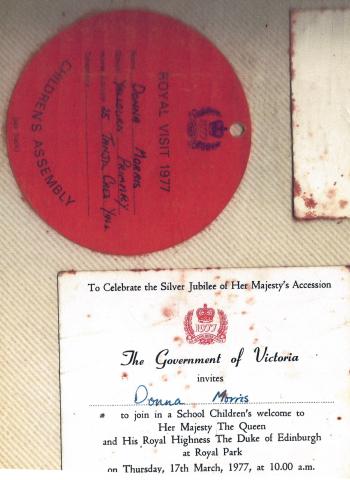 ROYAL VISIT 1977
Name Donna Morris
School Yallourn Primary
Home address 25 Tanjil Cres Yall
Telephone
CHILDREN'S ASSEMBLY
To Celebrate the Silver Jubilee of Her Majesty's Accession
1977
The Government of Victoria
invites
Donna Morris
to join in a School Children's welcome to
Her Majesty The Queen
and His Royal Highness The Duke of Edinburgh
at Royal Park
on Thursday, 17th March, 1977, at 10.00 a.m.